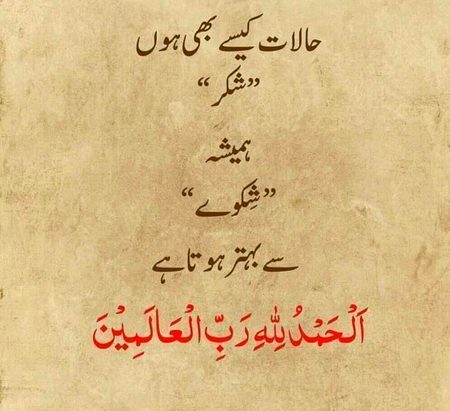 حالات کیسے بھی ہوں
”شکر“
ہمیشہ
”شِکوے“
سے بہتر ہوتا ہے
اَلْحَمْدُ لِلّٰهِ رَبِّ الْعَالَمِیْنَ